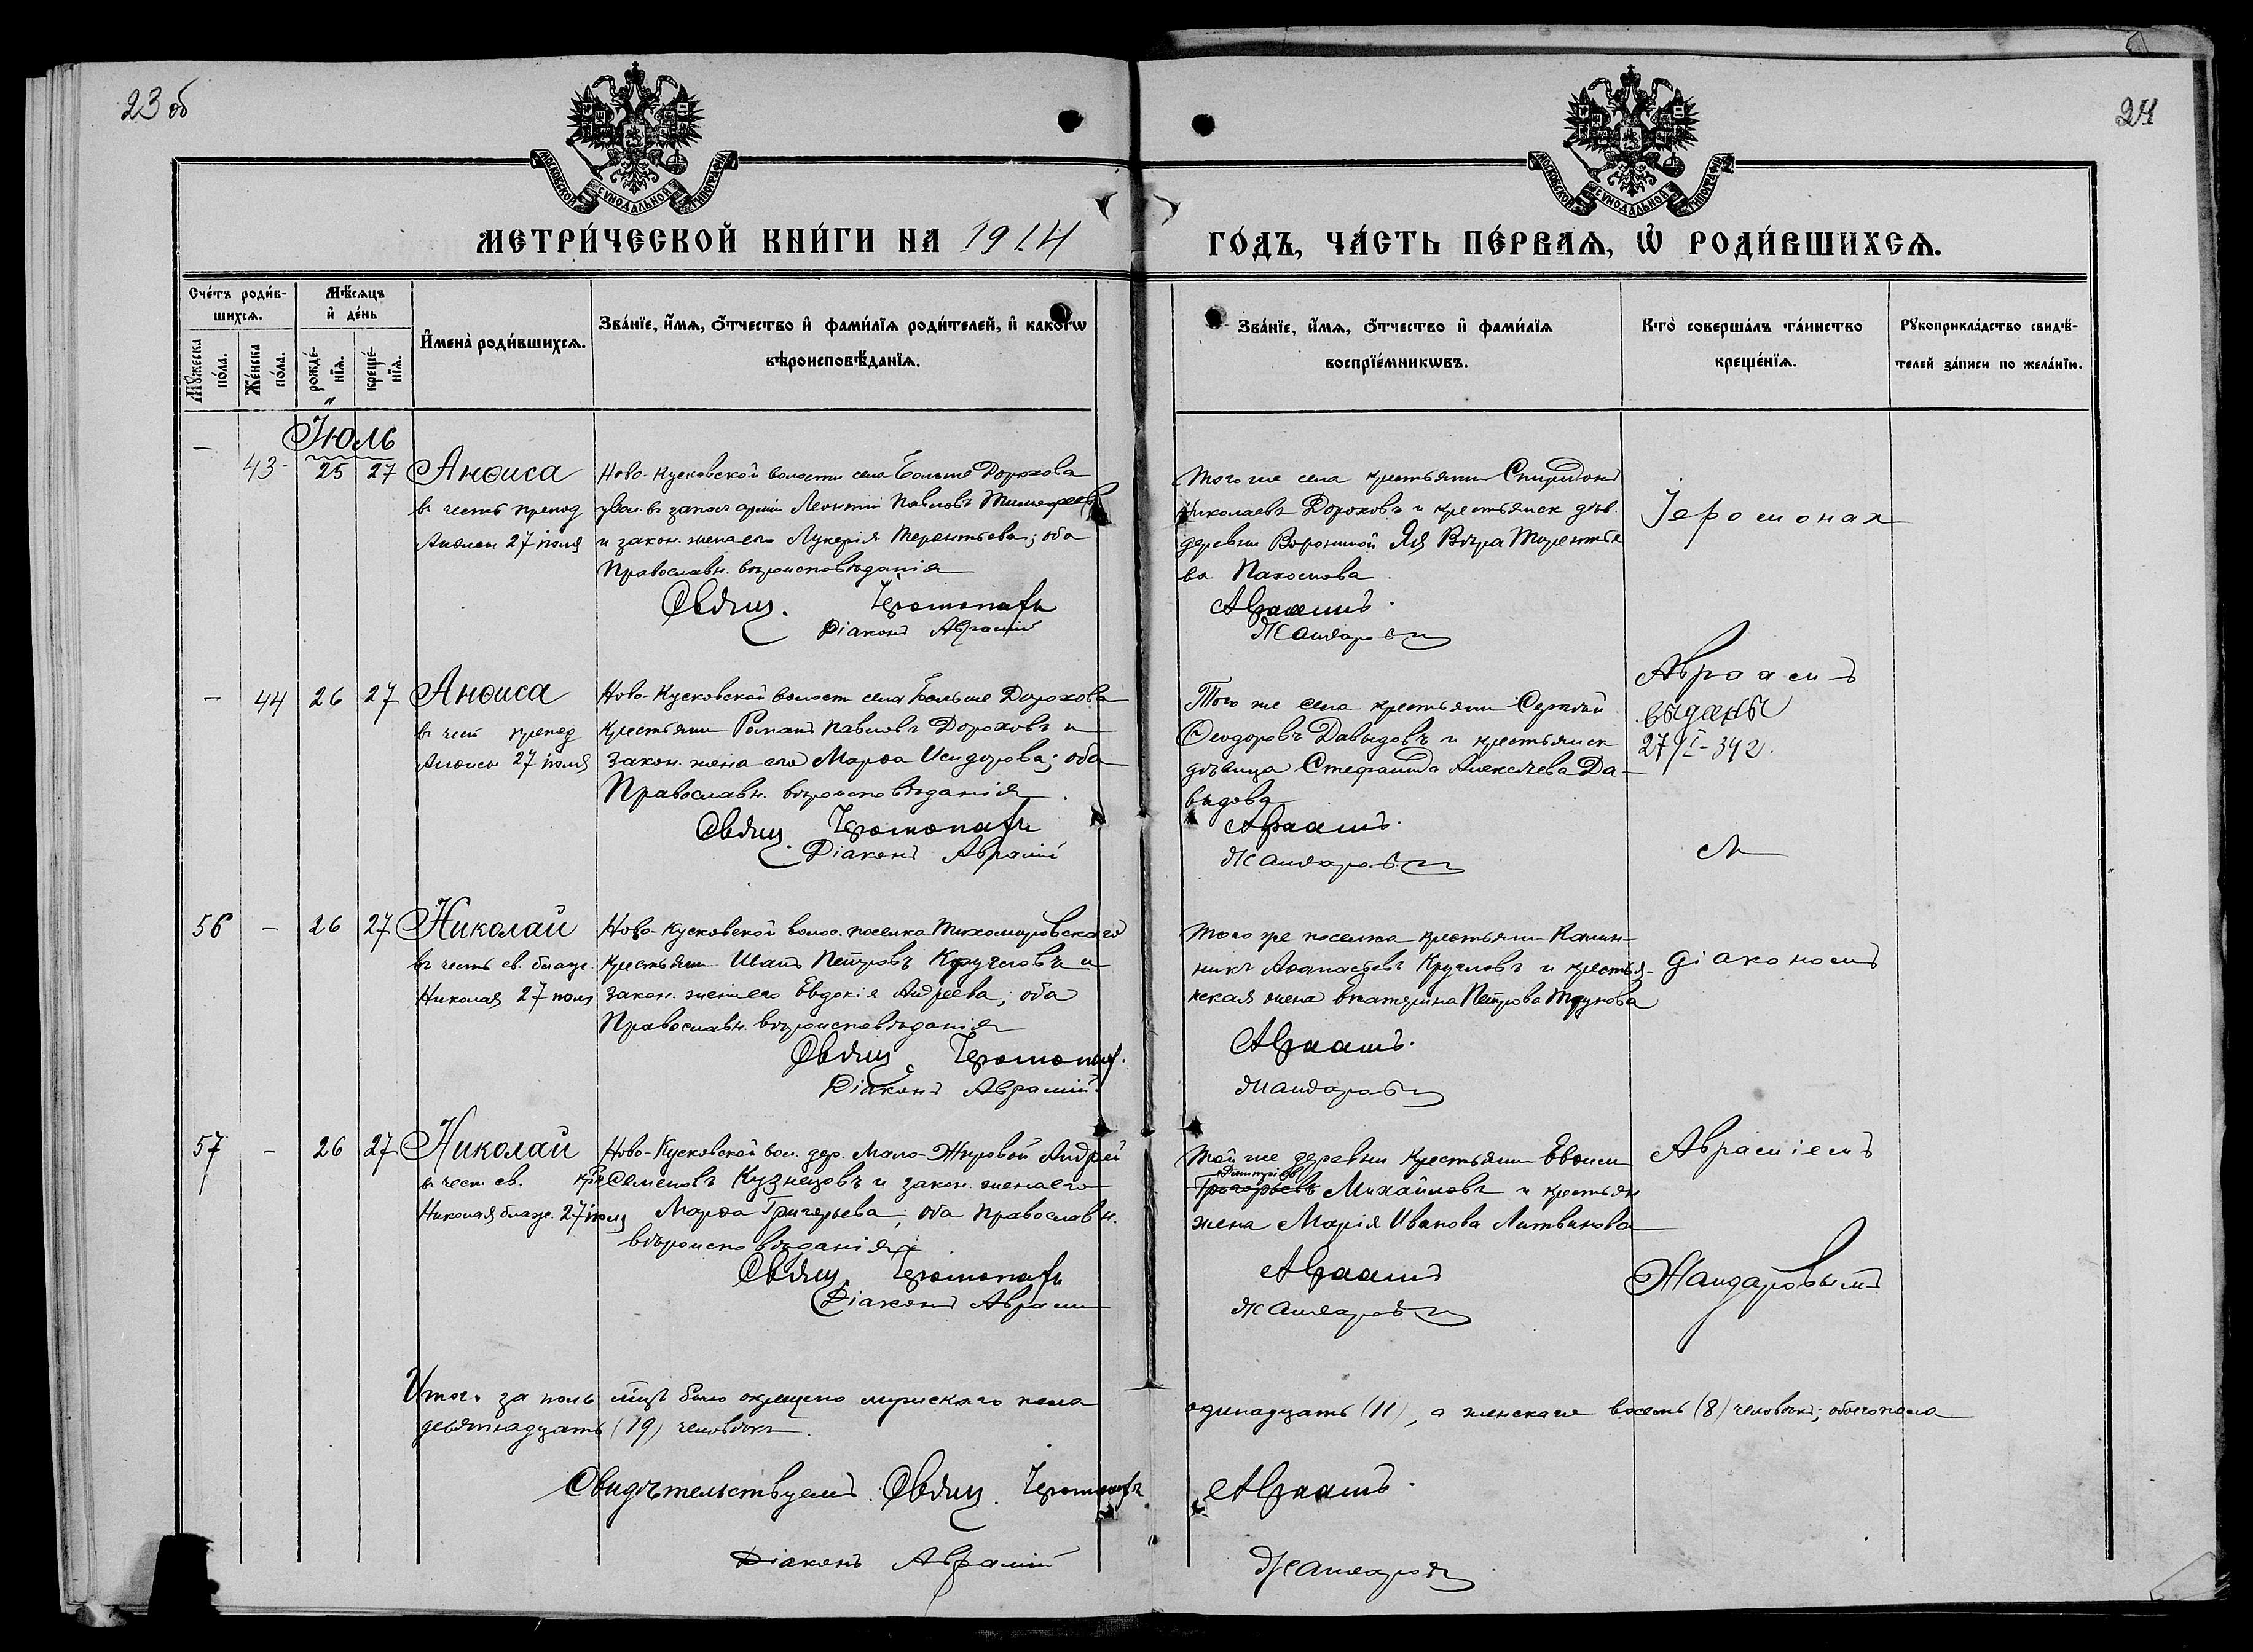 23 об
24
МОСКОВСКОЙ СѴНОДАЛЬНОЙ ТИПОГРАФІИ
МОСКОВСКОЙ СѴНОДАЛЬНОЙ ТИПОГРАФІИ
МЕТРИ́ЧЕСКОЙ КНИ́ГИ НА 1914
ГО́ДЪ, ЧА́СТЬ ПЕ́РВАѦ, Ѽ РОДИ́ВШИХСѦ.
Сче́тъ роди́в-
шихсѧ.
Мѣ́сѧцъ
и҆ де́нь
Мꙋ́жеска по́ла.
Же́нска по́ла.
рожде́-
нїѧ.
креще́-
нїѧ.
И҆мена̀ роди́вшихсѧ.
Зва́нїе, и҆́мѧ, ѻ҆́тчество и҆ фами́лїѧ роди́телей, и҆ како́гѡ
вѣроисповѣ́данїѧ.
Зва́нїе, и҆́мѧ, ѻ҆́тчество и҆ фами́лїѧ
воспрїе́мникѡвъ.
Кто̀ соверша́лъ та́инство
креще́нїѧ.
Рꙋкоприкла́дство свидѣ́-
телей за́писи по жела́нїю.
Іюль
— 43 25 27 Анѳиса
въ честь препод
Анѳисы 27 іюля
Ново-Кусковской волости села Больше Дорохова
увол. въ запас арміи Леонтій Павловъ Тимофеевъ
и закон. жена его Лукерія Терентьева; оба
Православн. вѣроисповѣданія
Іеромонахъ
Діаконъ Аврамій
Того же села крестьянин Спиридонъ
Николаевъ Дороховъ и крестьянск дѣв.
деревни Ворониной Яя Вѣра Терентье
ва Пахомова
Авраамъ.
Жандаровъ
Іеромонах
— 44 26 27 Анѳиса
въ чест препод
Анѳисы 27 іюля
Ново-Кусковской волост села Больше Дорохова
Крестьянин Романъ Павловъ Дороховъ и
закон. жена его Марѳа Исидорова; оба
Православн. вѣроисповѣданія
Іеромонахъ
Діаконъ Аврамій
Того же села крестьянин Сергѣй
Ѳеодоровъ Давыдовъ и крестьянск
дѣвица Стефанида Алексѣева Да-
выдова
Авраамъ.
Жандаровъ
Авраамъ
выданы
27/I-39г.
и
56 — 26 27 Николай
въ честь св. блаж.
Николая 27 іюля
Ново-Кусковской волос. поселка Тихомировскаго
крестьянин Иванъ Петровъ Кругловъ и
закон. жена его Евдокія Андреева; оба
Православн. вѣроисповѣданія
Іеромонах.
Діаконъ Аврамій
Того же поселка крестьянин Калин-
никъ Аѳанасьевъ Кругловъ и крестья-
нская жена Екатерина Петрова Трунова
Авраамъ.
Жандаровъ
діакономъ
57 — 26 27 Николай
въ чест. св.
Николая блаж. 27 іюля
Ново-Кусковской вол. дер. Мало-Жировой Андрей
кр. Семеновъ Кузнецовъ и закон. жена его
Марѳа Григорьева; оба православн.
вѣроисповѣданія
Іеромонахъ
Діаконъ Аврамій
Той же деревни крестьянин Евѳим
Димитріев
Григорьевъ Михайловъ и крестьян
жена Марія Иванова Литвинова
Авраамъ
Жандаровъ
Авраміемъ
Жандаровымъ
Итого за іюль мцъ было окрещено мужскаго пола
одинадцать (11), а женскаго восемь (8) человѣкъ; обоего пола
девятнадцать (19) человѣкъ.
Свидѣтельствуемъ. Іеромонахъ
Авраамъ.
Діаконъ Аврамій
Жандаровъ